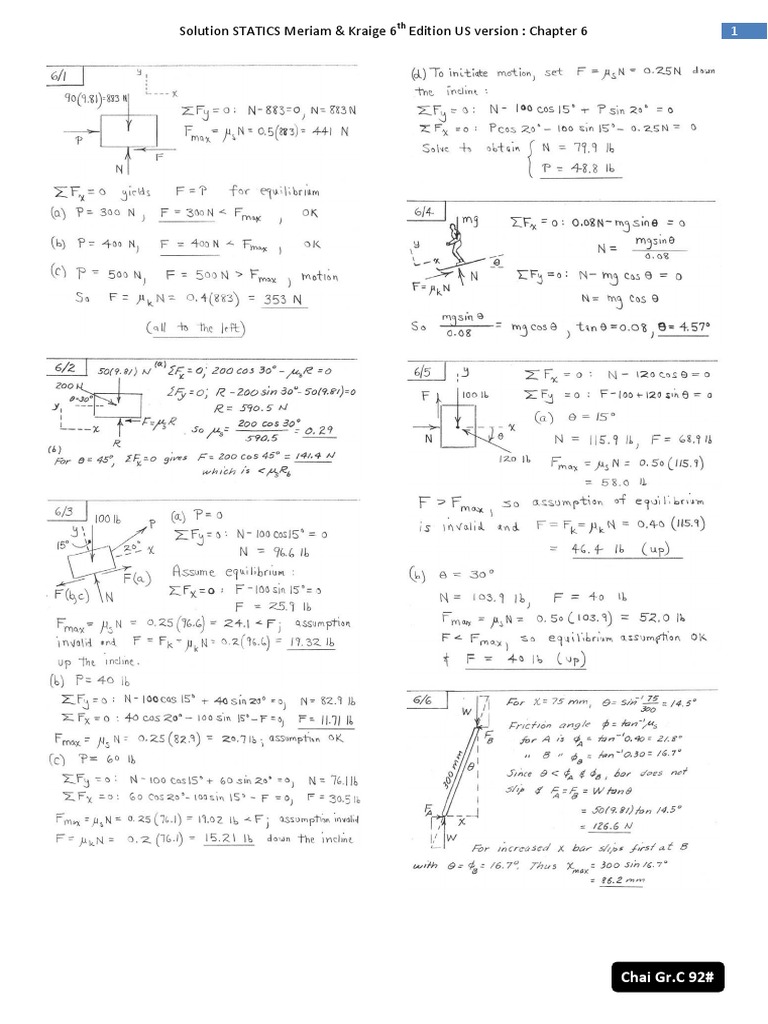 Solution STATICS Meriam & Kraige 6th Edition US version : Chapter 6
1
6/1
y
x
90(9.81)=883 N
P
F
N
ΣFy=0: N-883=0, N=883N
Fmax = μsN = 0.5(883) = 441 N
ΣFx=0 yields F=P for equilibrium
(a) P= 300 N, F = 300N < Fmax, OK
(b) P= 400 N, F = 400N < Fmax, OK
(c) P = 500N, F = 500N > Fmax, motion
So F = μkN = 0.4(883) = 353 N
(all to the left)
6/2
50(9.81) N
200N
θ=30°
y
x
F=μsR
R
(a) ΣFx=0; 200 cos 30° - μsR = 0
ΣFy=0; R-200 sin 30°-50(9.81)=0
R = 590.5 N
So μs = 200 cos 30° / 590.5 = 0.29
(b)
For θ=45°, ΣFx=0 gives F=200 cos 45° = 141.4 N
which is < μsRb
6/3
100 lb
P
y
15°
20°
x
F(a)
F(b,c)
N
(a) P=0
ΣFy=0: N-100 cos15° = 0
N = 96.6 lb
Assume equilibrium :
ΣFx=0: F-100 sin 15°=0
F = 25.9 lb
Fmax = μsN = 0.25(96.6) = 24.1 < F; assumption
invalid and F = Fk = μkN = 0.2(96.6) = 19.32 lb
up the incline.
(b) P= 40 lb
ΣFy=0: N-100 cos 15° + 40 sin 20° = 0, N= 82.9 lb
ΣFx=0: 40 cos 20° - 100 sin 15° - F=0, F= 11.71 lb
Fmax = μsN = 0.25(82.9) = 20.7 lb; assumption OK
(c) P= 60 lb
ΣFy=0: N-100 cos 15° + 60 sin 20° = 0, N= 76.1 lb
ΣFx=0: 60 cos 20° - 100 sin 15° - F = 0, F = 30.5 lb
Fmax = μsN = 0.25(76.1) = 19.02 lb < F; assumption invalid
F = μkN = 0.2(76.1) = 15.21 lb down the incline
(d) To initiate motion, set F = μsN = 0.25N down
the incline :
ΣFy=0: N- 100 cos 15° + P sin 20° = 0
ΣFx=0: P cos 20° - 100 sin 15° - 0.25N = 0
Solve to obtain { N = 79.9 lb
P = 48.8 lb
6/4
mg
y
x
θ
N
F=μkN
ΣFx=0: 0.08N-mg sinθ = 0
N = mg sinθ / 0.08
ΣFy=0: N-mg cos θ = 0
N= mg cos θ
So mg sin θ / 0.08 = mg cosθ, tanθ=0.08, θ= 4.57°
6/5
y
F
100 lb
N
x
θ
120 lb
ΣFx = 0: N - 120 cosθ = 0
ΣFy = 0: F-100+120 sinθ = 0
(a) θ = 15°
N = 115.9 lb, F= 68.9 lb
Fmax = μsN = 0.50(115.9)
= 58.0 lb
F > Fmax, so assumption of equilibrium
is invalid and F = Fk = μkN = 0.40(115.9)
= 46.4 lb (up)
(b) θ = 30°
N = 103.9 lb, F = 40 lb
Fmax = μsN = 0.50(103.9) = 52.0 lb
F < Fmax, so equilibrium assumption OK
& F = 40 lb (up)
6/6
W
FB
300 mm
θ
FA
x
W
For x=75 mm, θ=sin⁻¹ 75/300 = 14.5°
Friction angle φ=tan⁻¹μs
for A is φA=tan⁻¹0.40=21.8°
" B " φB=tan⁻¹0.30=16.7°
Since θ<φA & φB, bar does not
slip & FA=FB=W tanθ
= 50(9.81) tan 14.5°
= 126.6 N
For increased x bar slips first at B
with θ=φB=16.7°. Thus xmax = 300 sin 16.7°
= 86.2 mm
Chai Gr.C 92#